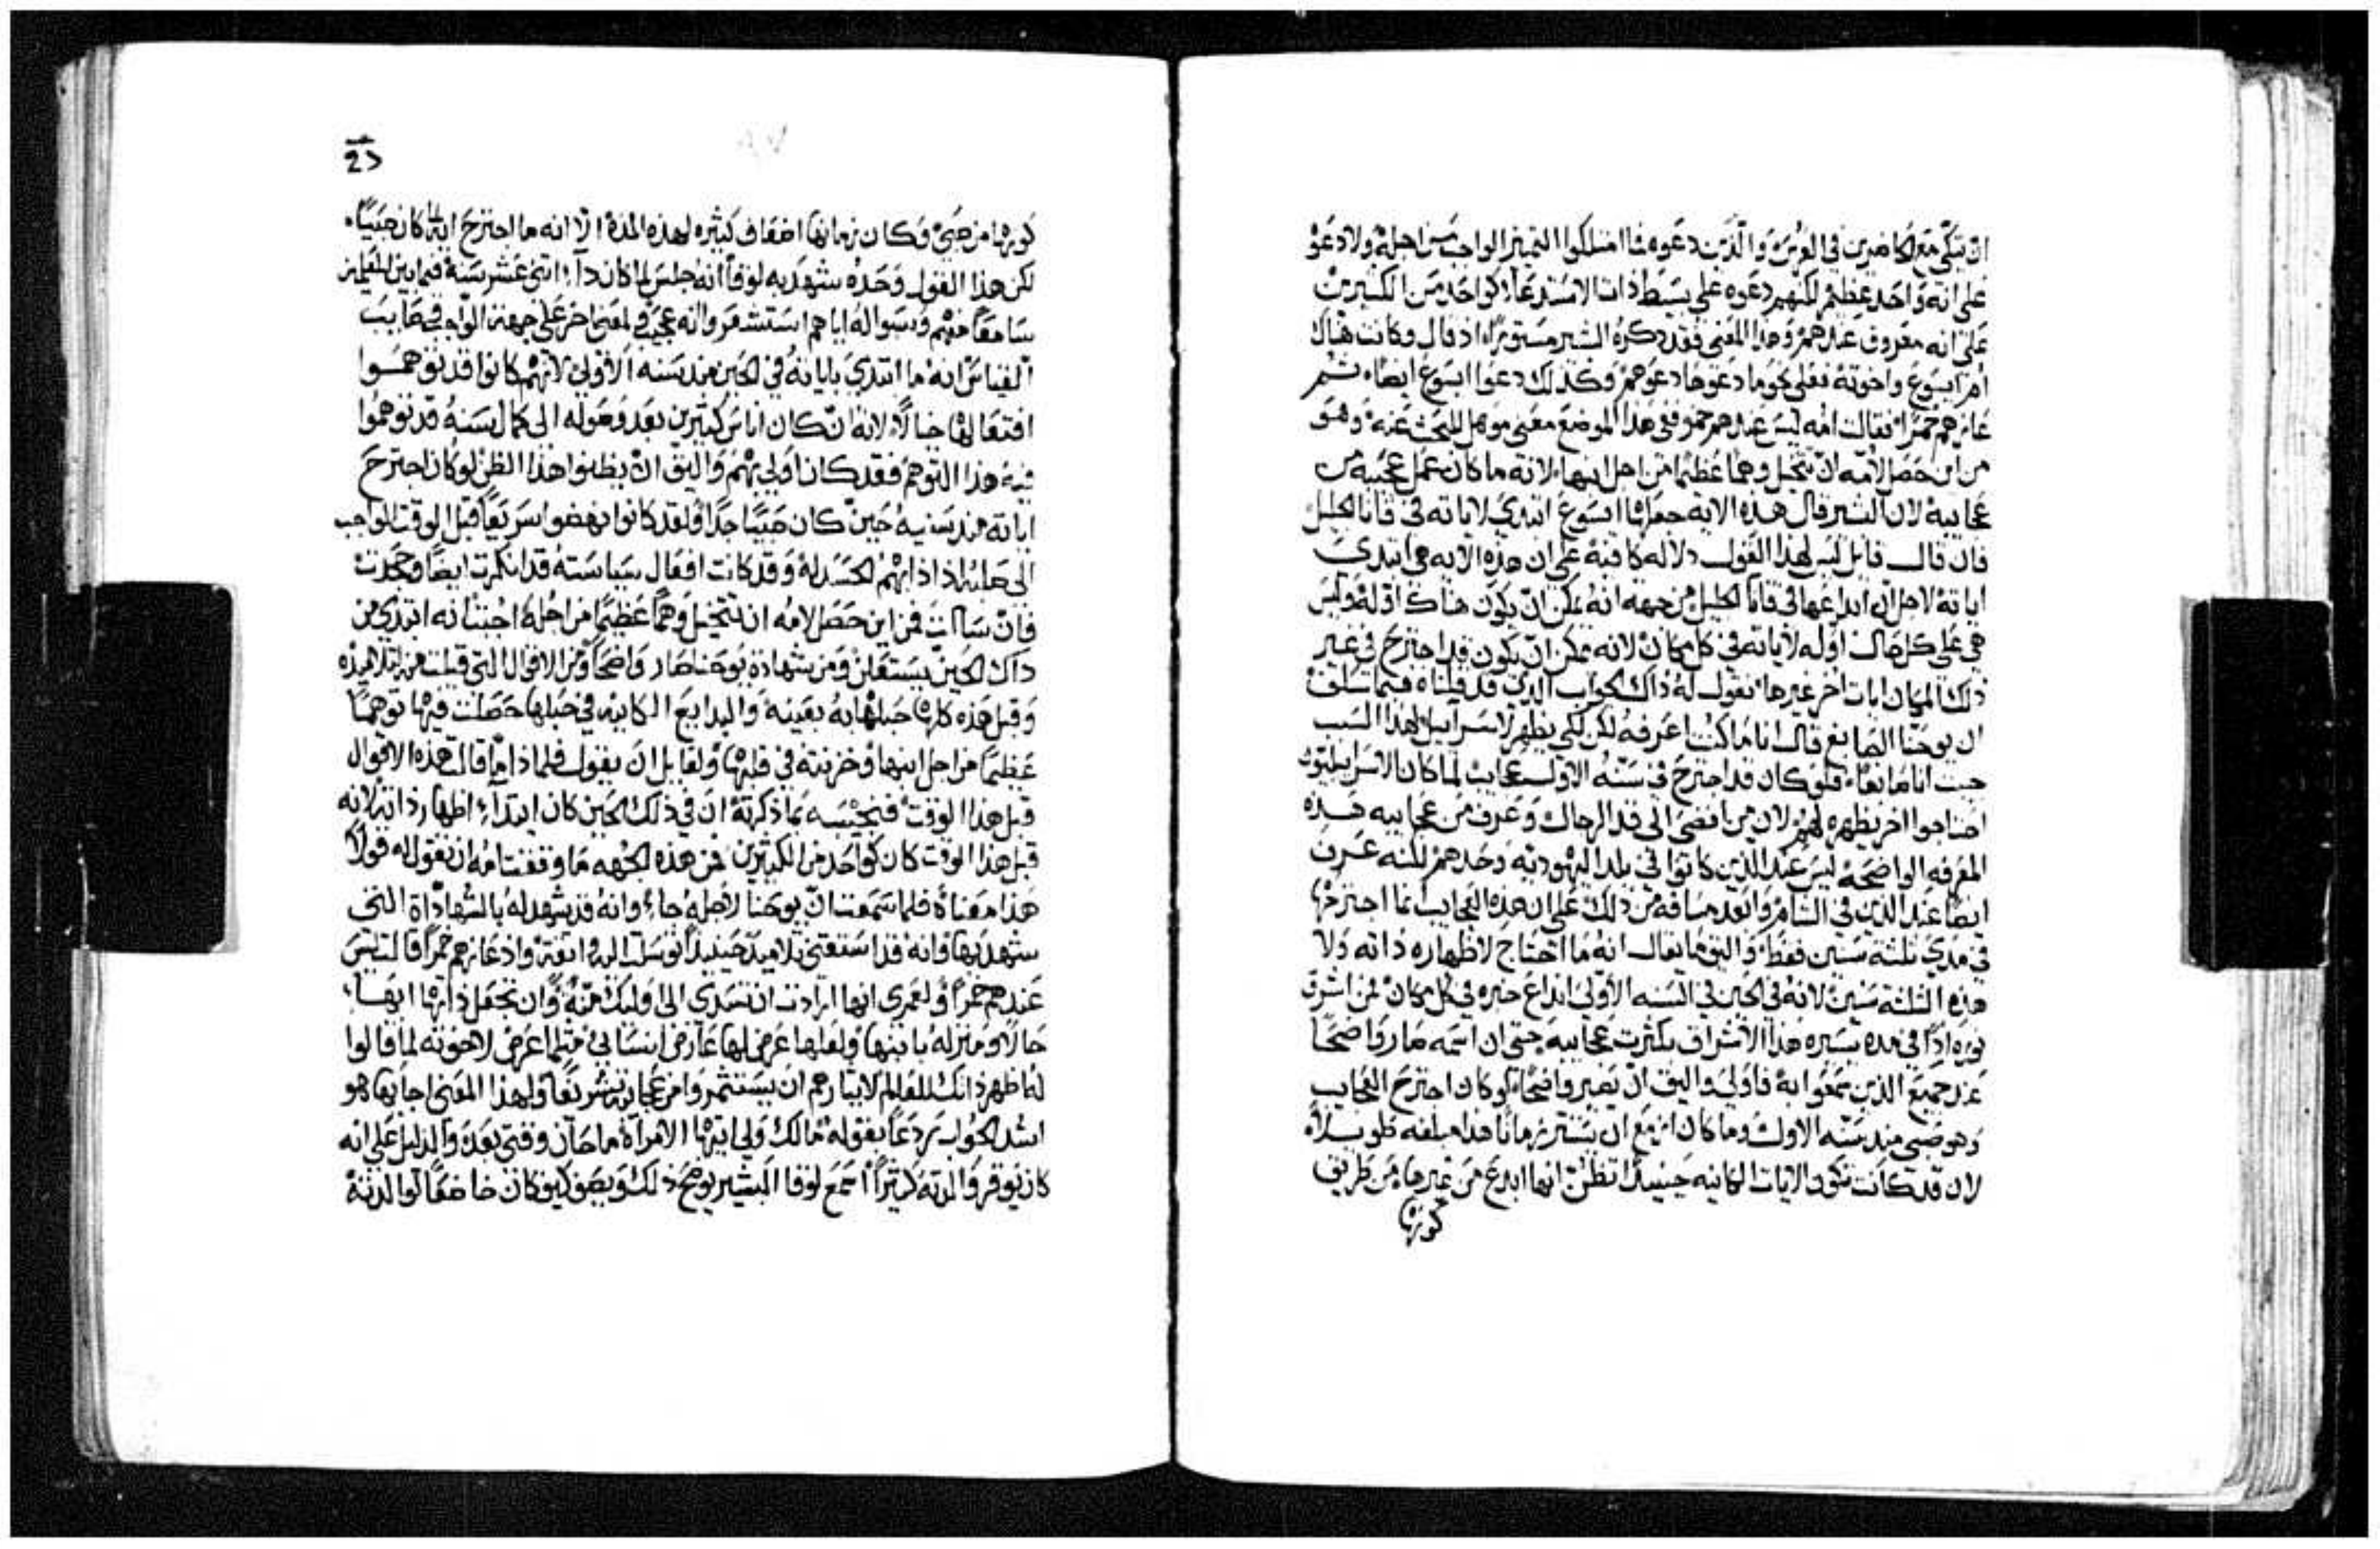 ان يتكي مع الحاضرين في العرس والذين دعوه فما امتلكوا التمييز الواجب من اجله ولا دعوه
على انه واحد عظيم لكنهم دعوه على بسيط ذات الاستدعا كواحد من الكثيرين
على انه معروف عندهم وهذا المعنى فقد ذكره البشير مستورا اذ قال وكانت هناك
ام ايسوع واخوته فعلى نحو ما دعوها دعوهم وكذلك دعوا ايسوع ايضا ثم
عازهم خمرا فقالت امه ليس عندهم خمر ففي هذا الموضع معنى موهل للبحث عنه وهو
من اين حصل لامه ان تتخيل وهما عظيما من اجل ابنها لانه ما كان عمل عجيبه من
عجايبه لان البشير قال هذه الايه جعلها ايسوع ابتدى لاياته في قانا الجليل
فان قال قايل ليس لهذا القول دلاله كافيه على ان هذه الايه هي ابتدى
اياته لاجل ان ابداعها في قانا الجليل من جهه انه يمكن ان يكون هناك اوله وليس
هي على كل حال اوله لاياته في كل مكان لانه يمكن ان يكون قد اجترح في غير
ذلك المكان ايات اخر غيرها نقول له ذاك الجواب الذي قد قلناه فيما سلف
ان يوحنا الصابغ قال انا ما كنت اعرفه لكن لكي يظهر لاسراييل لهذا السبب
جيت انا صابغا فلو كان قد اجترح في سنه الاول عجايب لما كان الاسراييليون
احتاجوا اخر يظهره لهم لان من افضى الى قد الرجال وعرف من عجايبه هذه
المعرفه الواضحه ليس عند الذين كانوا في بلد اليهوديه وحدهم لكنه عرف
ايضا عند الذين في الشام وابعد مسافه من ذلك على ان هذه العجايب انما اجترحها
في مدى ثلثه سنين فقط واليق ما يقال انه ما احتاج لاظهاره ذاته ولا
هذه الثلثه سنين لانه في الحين في السنه الاولى ابداع خبره في كل مكان فمن اشرق
نوره اذا في مده يسيره هذا الاشراق بكثرت عجايبه حتى ان اسمه صار واضحا
عند جميع الذين سمعوا به فاولى واليق ان يصير واضحا لو كان اجترح العجايب
وهو صبي منذ سنه الاول وما كان ازمع ان يستتر زمانا هذا مبلغه طويلا
لان قد كانت تكون الايات الكاينه حينيذ تظن انها ابدع من غيرها من طريق
كونها
كونها من صبي وكان زمانها اضعاف كثيره لهذه المده الا انه ما اجترح ايه لما كان صبيا
لكن هذا القول وحده شهد به لوقا انه جلس لما كان داا اثني عشر سنه فيما بين المعلمين
سامعا منهم وبسواله اياهم استشعروا انه عجيب ولمعنى اخر على جهته الواجب في صايب
القياس انه ما ابتدى باياته في الحين منذ سنه الاولى لانهم كانوا قد توهموا
افتعالها خيالا لانه ان كان اناس كثيرين بعد وصوله الى كمال سنه قد توهموا
فيه هذا التوهم فقد كان اولى بهم واليق ان يظنوا هذا الظن لو كان اجترح
اياته منذ سنيه حين كان صبيا جدا ولقد كانوا نهضوا سريعا قبل الوقت الواجب
الى صلبه اذ اذابهم الحسد له وقد كانت افعال سياسته قد انكرت ايضا وجحدت
فان سالت فمن اين حصل لامه ان تتخيل وهما عظيما من اجله اجبتنا انه ابتدى من
ذاك الحين يستعلن ومن شهادة يوحنا صار واضحا ومن الاقوال التي قيلت من تلاميذه
وقبل هذه كلها حبلها به بعينه والبدايع الكاينه في حبلها حصلت فيها توهما
عظيما من اجل ابنها وخزنته في قلبها ولقايل ان يقول فلماذا ما قالت هذه الاقوال
قبل هذا الوقت فنجيبه بما ذكرته ان في ذلك الحين كان ابتداء اظهار ذاته لانه
قبل هذا الوقت كان كواحد من الكثيرين فمن هذه الجهه ما وقفت امه ان تقول له قولا
هذا معناه فلما سمعت ان يوحنا لاجله جاء وانه قد شهد له بالشهادة التي
شهد بها وانه قد استقنى تلاميذ حينيذ توسلت اليه واثقه واذ عازهم خمرا قالت ليس
عندهم خمرا ولعمري انها ارادت ان تسدي الى اوليك منه وان تجعل ذاتها ابهاء
حالا ومنزله بابنها ولعلها عرض لها عارض انساني مثلما عرض لاخوته لما قالوا
له اظهر ذاتك للعالم لايثارهم ان يستثمروا من عجايبه تشريفا ولهذا المعنى اجابها هو
اشد الجواب ردعا بقوله ما لك ولي ايتها الامراة ما حان وقتي بعد والدليل على انه
كان يوقر والدته كثيرا اسمع لوقا البشير يوضح ذلك ويصف كيف كان خاضعا لوالدته